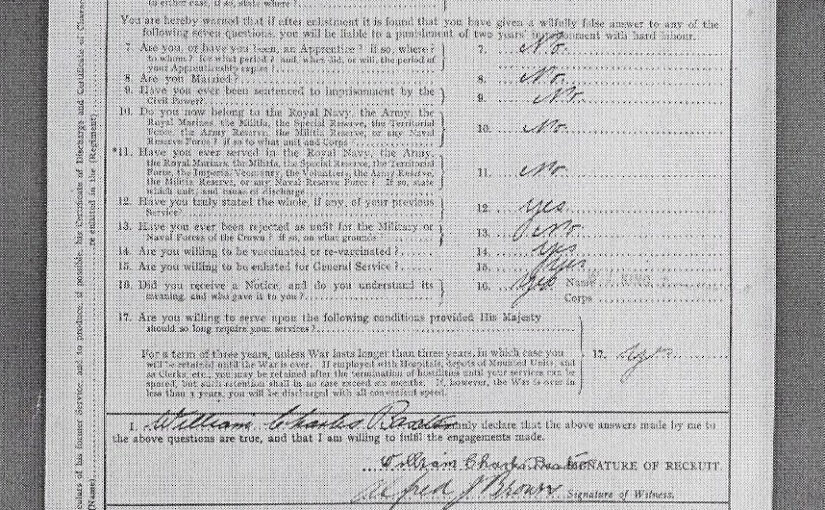 to either case, if so, state where?
You are hereby warned that if after enlistment it is found that you have given a wilfully false answer to any of the
following seven questions, you will be liable to a punishment of two years' imprisonment with hard labour.
7. Are you, or have you been, an Apprentice? if so, where?
to whom? for what period? and, when did, or will, the period of
your Apprenticeship expire?
7. No.
8. Are you Married?
8. No.
9. Have you ever been sentenced to imprisonment by the
Civil Power?
9. No.
10. Do you now belong to the Royal Navy, the Army, the
Royal Marines, the Militia, the Special Reserve, the Territorial
Force, the Army Reserve, the Militia Reserve, or any Naval
Reserve Force? if so to what unit and Corps
10. No.
*11. Have you ever served in the Royal Navy, the Army,
the Royal Marines, the Militia, the Special Reserve, the Territorial
Force, the Imperial Yeomanry, the Volunteers, the Army Reserve,
the Militia Reserve, or any Naval Reserve Force? If so, state
which unit, and cause of discharge
11. No
12. Have you truly stated the whole, if any, of your previous
Service?
12. yes
13. Have you ever been rejected as unfit for the Military or
Naval Forces of the Crown? if so, on what grounds
13. No.
14. Are you willing to be vaccinated or re-vaccinated?
14. yes
15. Are you willing to be enlisted for General Service?
15. yes
16. Did you receive a Notice, and do you understand its
meaning, and who gave it to you?
16. yes Name
Corps
17. Are you willing to serve upon the following conditions provided His Majesty
should so long require your services?
For a term of three years, unless War lasts longer than three years, in which case you
will be retained until the War is over. If employed with Hospitals, depots of Mounted Units, and
as Clerks, etc., you may be retained after the termination of hostilities until your services can be
spared, but such retention shall in no case exceed six months. If, however, the War is over in
less than 3 years, you will be discharged with all convenient speed.
17. yes
I, William Charles solemnly declare that the above answers made by me to
the above questions are true, and that I am willing to fulfil the engagements made.
William Charles SIGNATURE OF RECRUIT.
Alfred J Brown Signature of Witness.
culars of his former Service, and to produce, if possible, his Certificate of Discharge and Certificate of Charac
(Name) re-enlisted in the (Regiment)